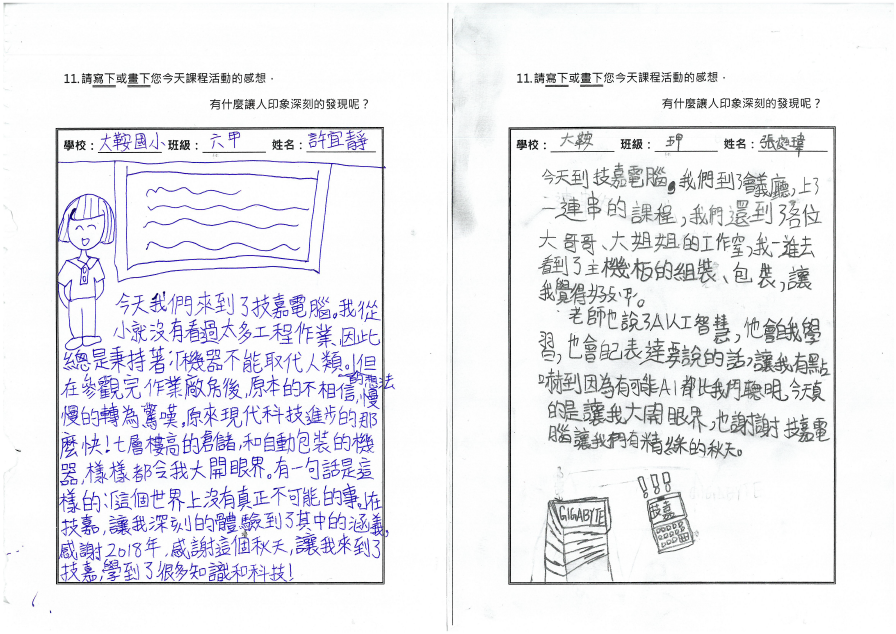 11.請寫下或畫下您今天課程活動的感想，
有什麼讓人印象深刻的發現呢？
學校：大鞍國小 班級：六甲 姓名：許宜靜
今天我們來到了技嘉電腦。我從
小就沒有看過太多工程作業，因此
總是秉持著「機器不能取代人類。」但
在參觀完作業廠房後，原本的不相信的想法，慢
慢的轉為驚嘆，原來現代科技進步的那
麼快！七層樓高的倉儲，和自動包裝的機
器，樣樣都令我大開眼界。有一句話是這
樣的：「這個世界上沒有真正不可能的事。」在
技嘉，讓我深刻的體驗到了其中的涵義，
感謝2018年，感謝這個秋天，讓我來到了
技嘉，學到了很多知識和科技！
11.請寫下或畫下您今天課程活動的感想，
有什麼讓人印象深刻的發現呢？
學校：大鞍 班級： 姓名：張
今天到技嘉電腦，我們到了會議廳，上了
一連串的課程，我們還到了各位
大哥哥、大姐姐的工作室，我一進去
看到了主機板的組裝、包裝，讓
我覺得好好。
老師也說了AI人工智慧，他會自我學
習，也會自己表達要說的話，讓我有點
嚇到因為有可能AI都比我們聰明。今天真
的是讓我大開眼界，也謝謝技嘉電
腦讓我們有精綵的秋天。
GIGABYTE
技嘉